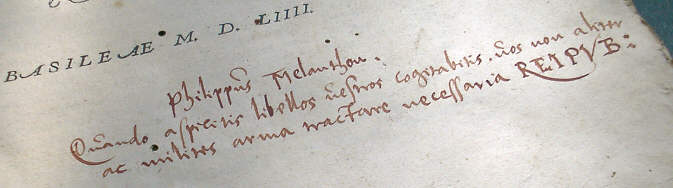 BASILEAE M. D. LIIII.
Philippus Melanthon.
Quando aspicitis libellos vestros cogitabitis. vos non aliter
ac milites arma tractare necessaria REIPVB: